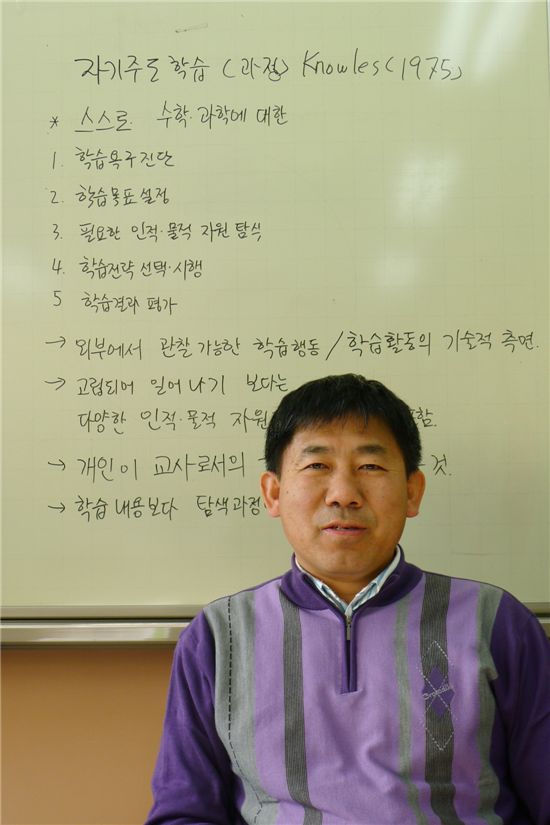 자기주도학습 (과정) Knowles (1975)
* 스스로 수학·과학에 대한
1. 학습욕구진단
2. 학습목표설정
3. 필요한 인적·물적 자원 탐식
4. 학습전략 선택·시행
5 학습결과 평가
→ 외부에서 관찰 가능한 학습행동 / 학습활동의 기술적 측면.
→ 고립되어 일어나기 보다는
다양한 인적·물적 자원 함.
→ 개인이 교사로서의 것.
→ 학습내용보다 탐색과정